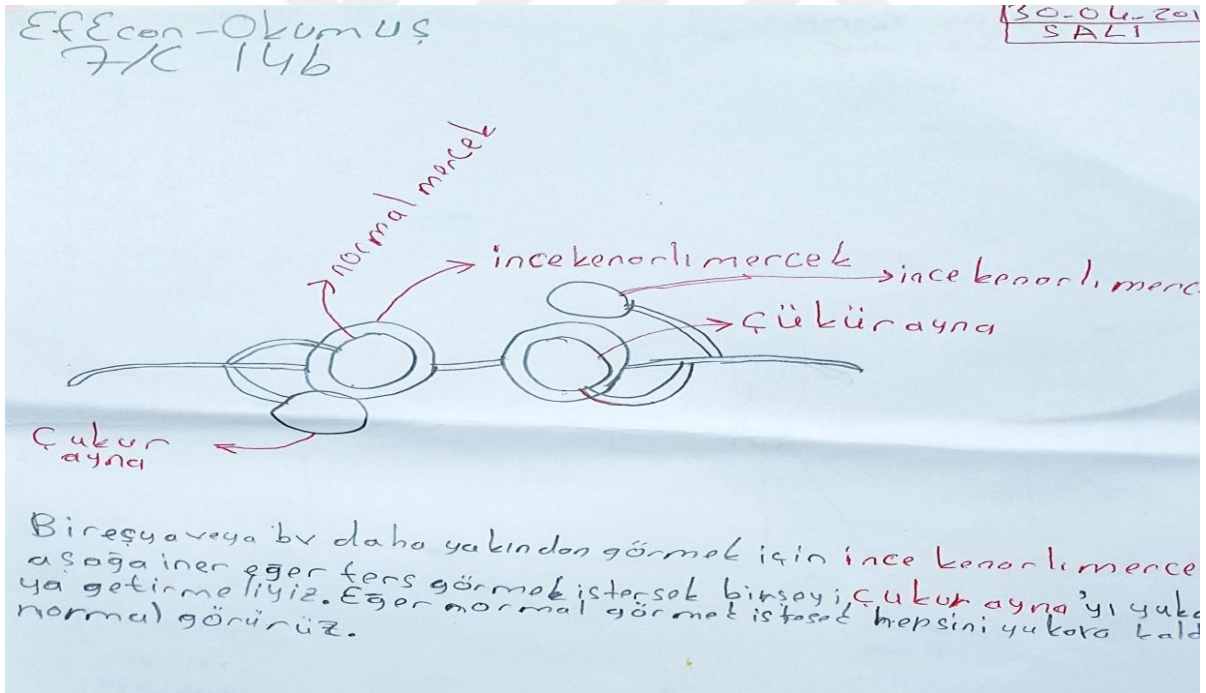 EfEcan-Okumuş
7/C 146
30-04-201
SALI
normal mercek
ince kenarlı mercek
ince kenarlı merc
çükür ayna
Çukur
ayna
Bir eşya veya bv daha yakından görmek için ince kenarlı merce
aşağa iner eğer ters görmek istersek birşeyi, çukur ayna'yı yuka
ya getirmeliyiz. Eğer normal görmek istesek hepsini yukara kald
normal görürüz.